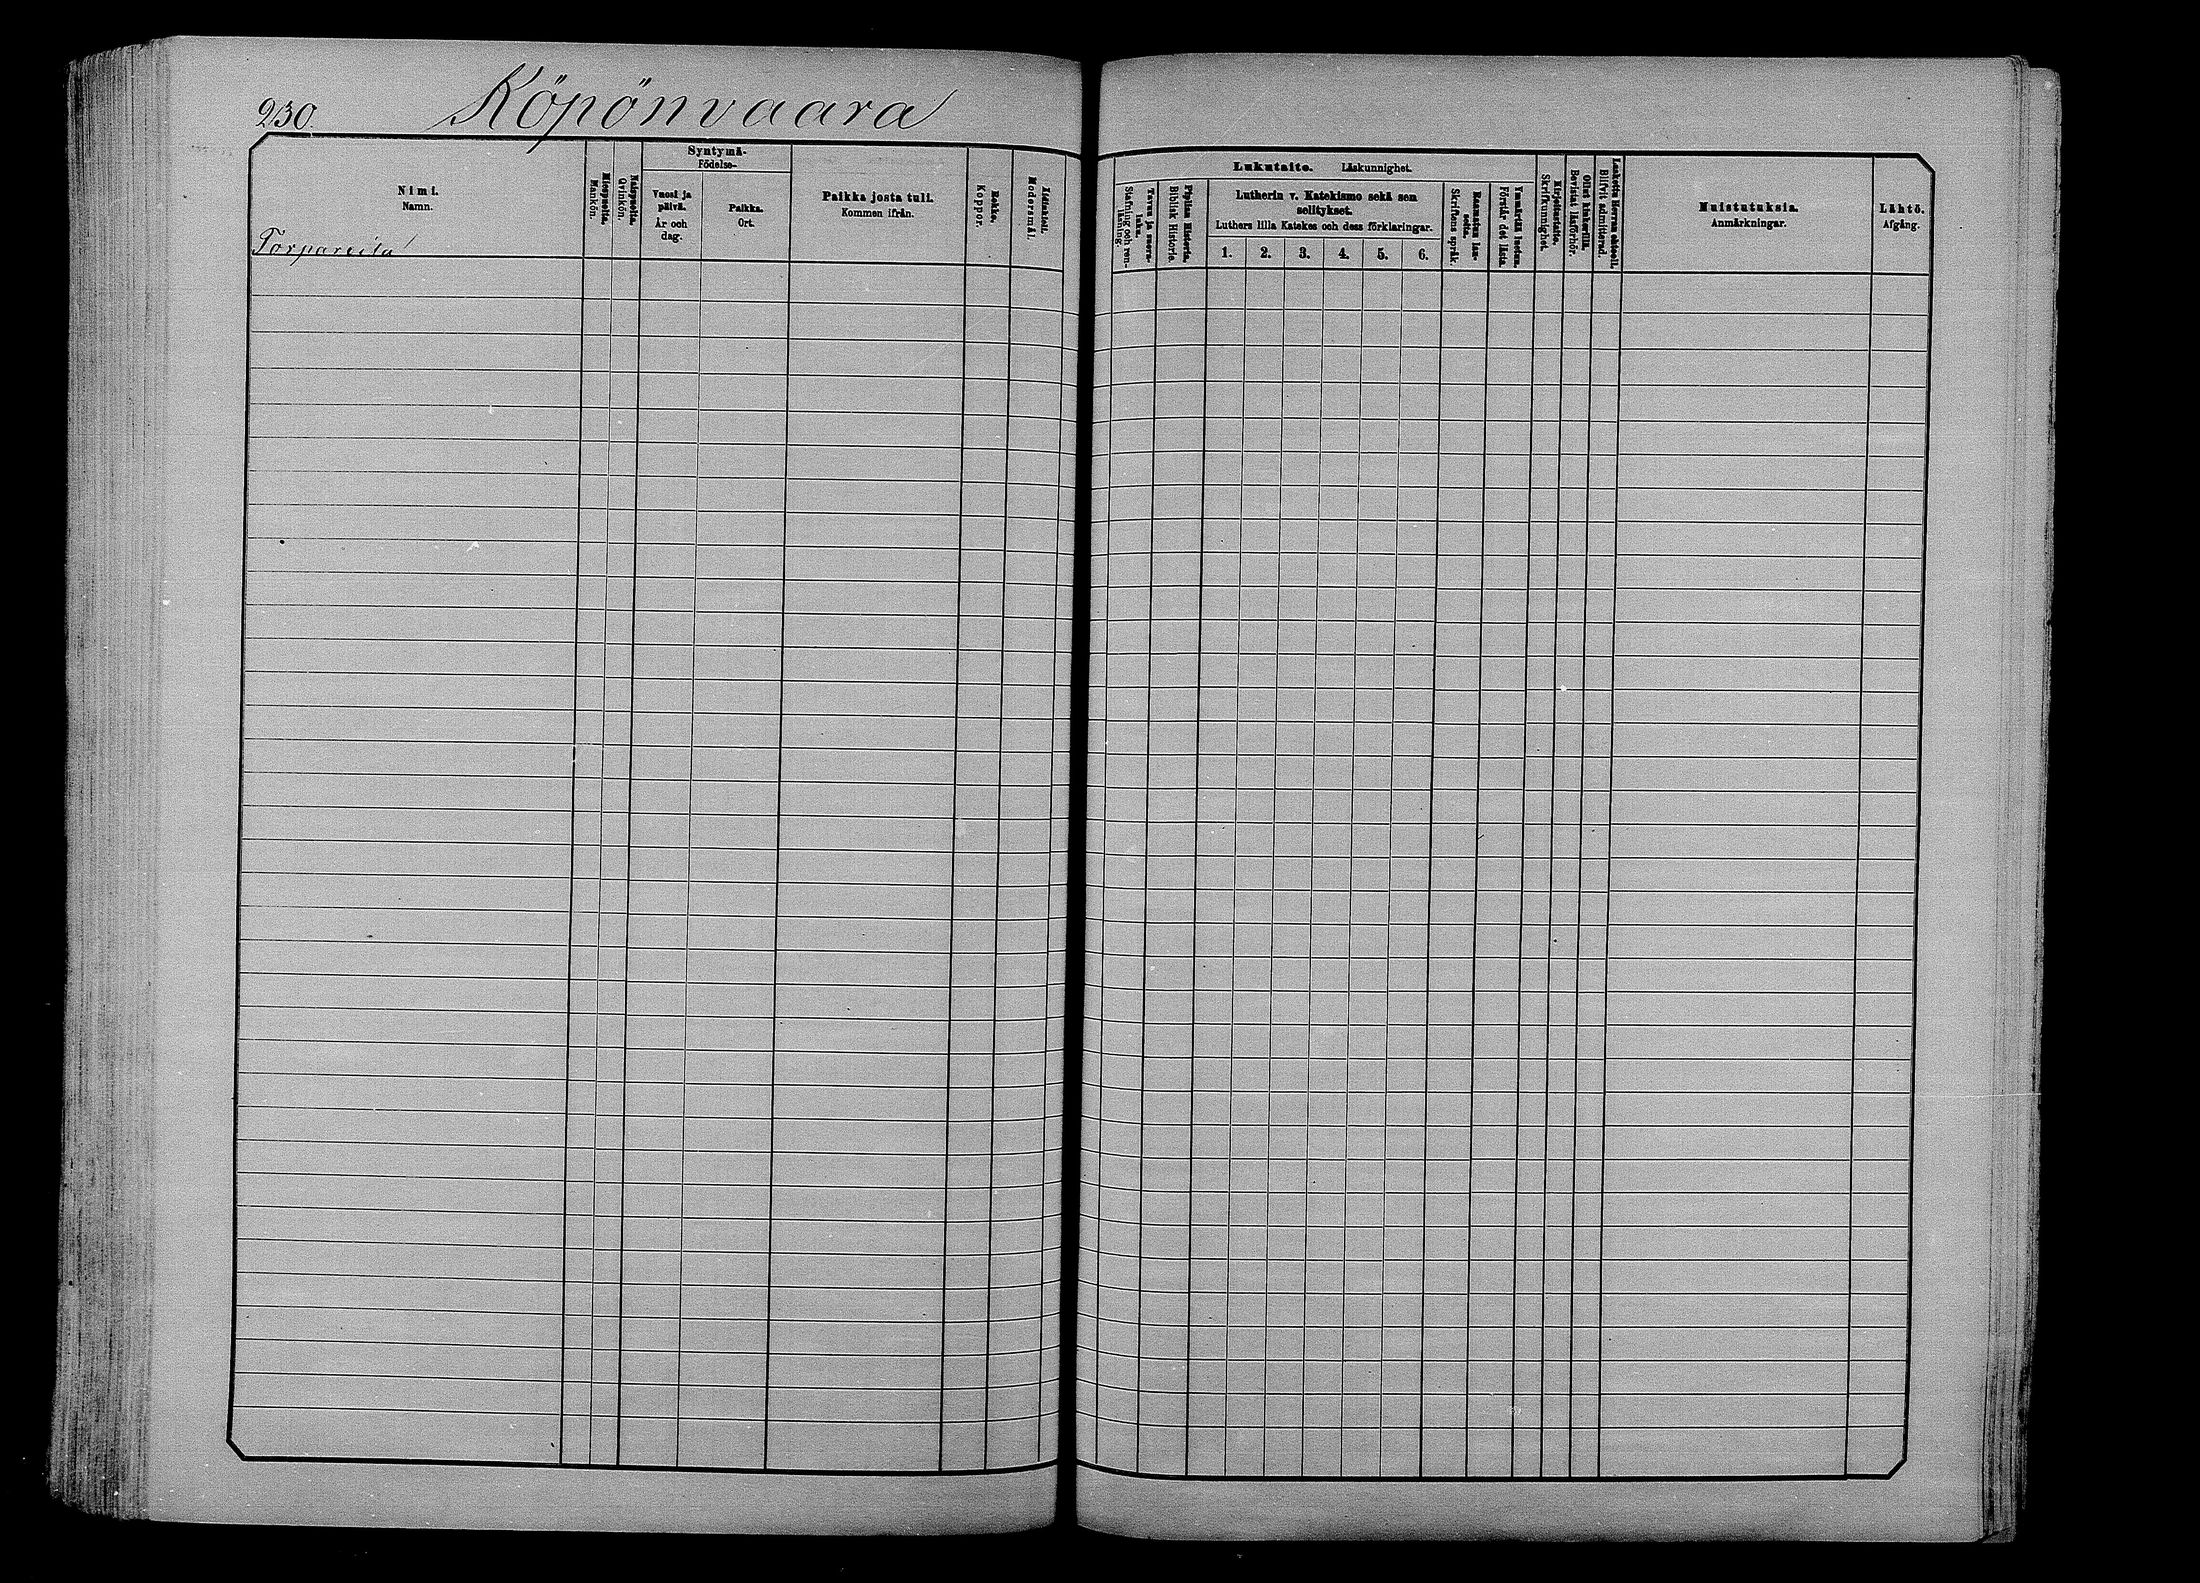 230.
Köpönvaara
Nimi.
Namn.
Torpareita
Miespuolta.
Mankön.
Naispuolta.
Qvinkön.
Syntymä-
Födelse-
Vuosi ja
päivä.
År och
dag.
Paikka.
Ort.
Paikka josta tuli.
Kommen ifrån.
Rokko.
Koppor.
Äidinkieli.
Modersmål.
Lukutaito. Läskunnighet.
Tavuu ja suora-
luku.
Stafning och ren-
läsning.
Piplian Historia.
Biblisk Historie.
Lutherin v. Katekismo sekä sen
selitykset.
Luthers lilla Katekes och dess förklaringar.
1. 2. 3. 4. 5. 6.
Raamatun lau-
seita.
Skriftens språk.
Ymmärtää luetun.
Förstår det lästa.
Kirjoitustaito.
Skrifkunnighet.
Ollut kinkerillä.
Bevistat läsförhör.
Laskettu Herran ehtooll.
Blifvit admitterad.
Muistutuksia.
Anmärkningar.
Lähtö.
Afgång.